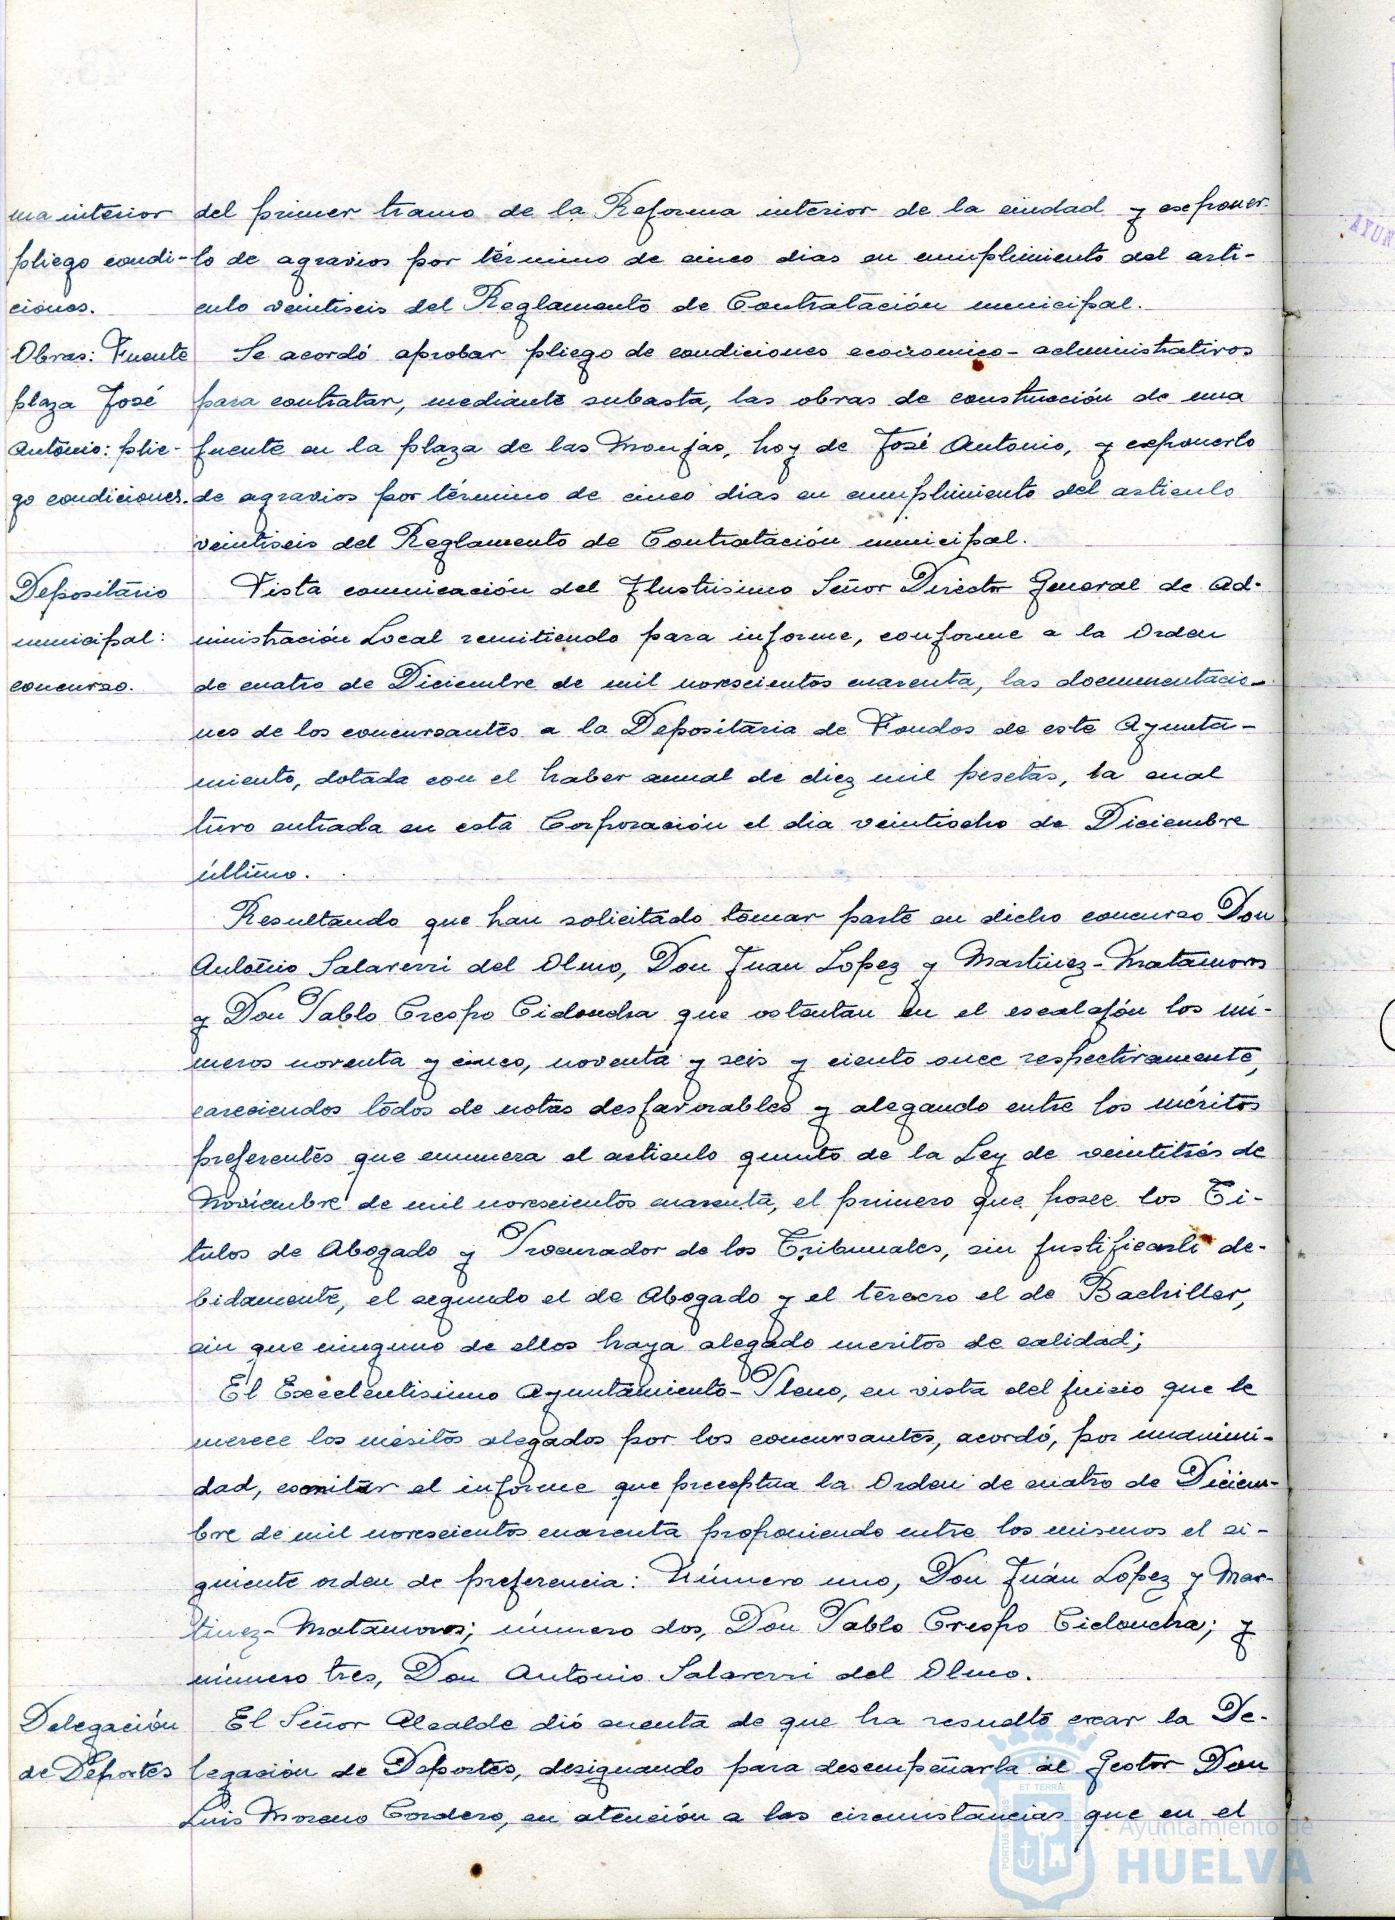 ma interior del primer tramo de la Reforma interior de la ciudad y exponer-
pliego condi- lo de agravios por término de cinco dias en cumplimiento del arti-
ciones. culo veintiseis del Reglamento de Contratación municipal.
Obras: Fuente Se acordó aprobar pliego de condiciones economico-administrativos
plaza José para contratar, mediante subasta, las obras de construcción de una
Antonio: plie- fuente en la plaza de las Monjas, hoy de José Antonio, y exponerlo
go condiciones. de agravios por término de cinco dias en cumplimiento del articulo
veintiseis del Reglamento de Contratación municipal.
Depositario Vista comunicación del Ilustrisimo Señor Director General de Ad-
municipal: ministración Local remitiendo para informe, conforme a la Orden
concurso. de cuatro de Diciembre de mil novescientos cuarenta, las documentacio-
nes de los concursantes a la Depositaria de Fondos de este Ayunta-
miento, dotada con el haber anual de diez mil pesetas, la cual
tuvo entrada en esta Corporación el dia veintiocho de Diciembre
último.
Resultando que han solicitado tomar parte en dicho concurso Don
Antonio Salaverri del Olmo, Don Juan Lopez y Martinez-Matamoros
y Don Pablo Crespo Cidoncha que ostentan en el escalafón los nú-
meros noventa y cinco, noventa y seis y ciento once respectivamente,
careciendos todos de notas desfavorables y alegando entre los méritos
preferentes que enumera el articulo quinto de la Ley de veintitrés de
Noviembre de mil novescientos cuarenta, el primero que posee los Ti-
tulos de Abogado y Procurador de los Tribunales, sin justificarlo de-
bidamente, el segundo el de Abogado y el tercero el de Bachiller,
sin que ninguno de ellos haya alegado meritos de calidad;
El Excelentisimo Ayuntamiento-Pleno, en vista del juicio que le
merece los méritos alegados por los concursantes, acordó, por unanimi-
dad, emitir el informe que preceptua la Orden de cuatro de Diciem-
bre de mil novescientos cuarenta proponiendo entre los mismos el si-
guiente orden de preferencia: Número uno, Don Juán López y Mar-
tinez-Matamoros; número dos, Don Pablo Crespo Cidoncha; y
número tres, Don Antonio Salaverri del Olmo.
Delegación El Señor Alcalde dió cuenta de que ha resuelto crear la De-
de Deportes legación de Deportes, designando para desempeñarla al Gestor Don
Luis Moreno Cordero, en atención a las circunstancias que en el
Ayuntamiento de
HUELVA